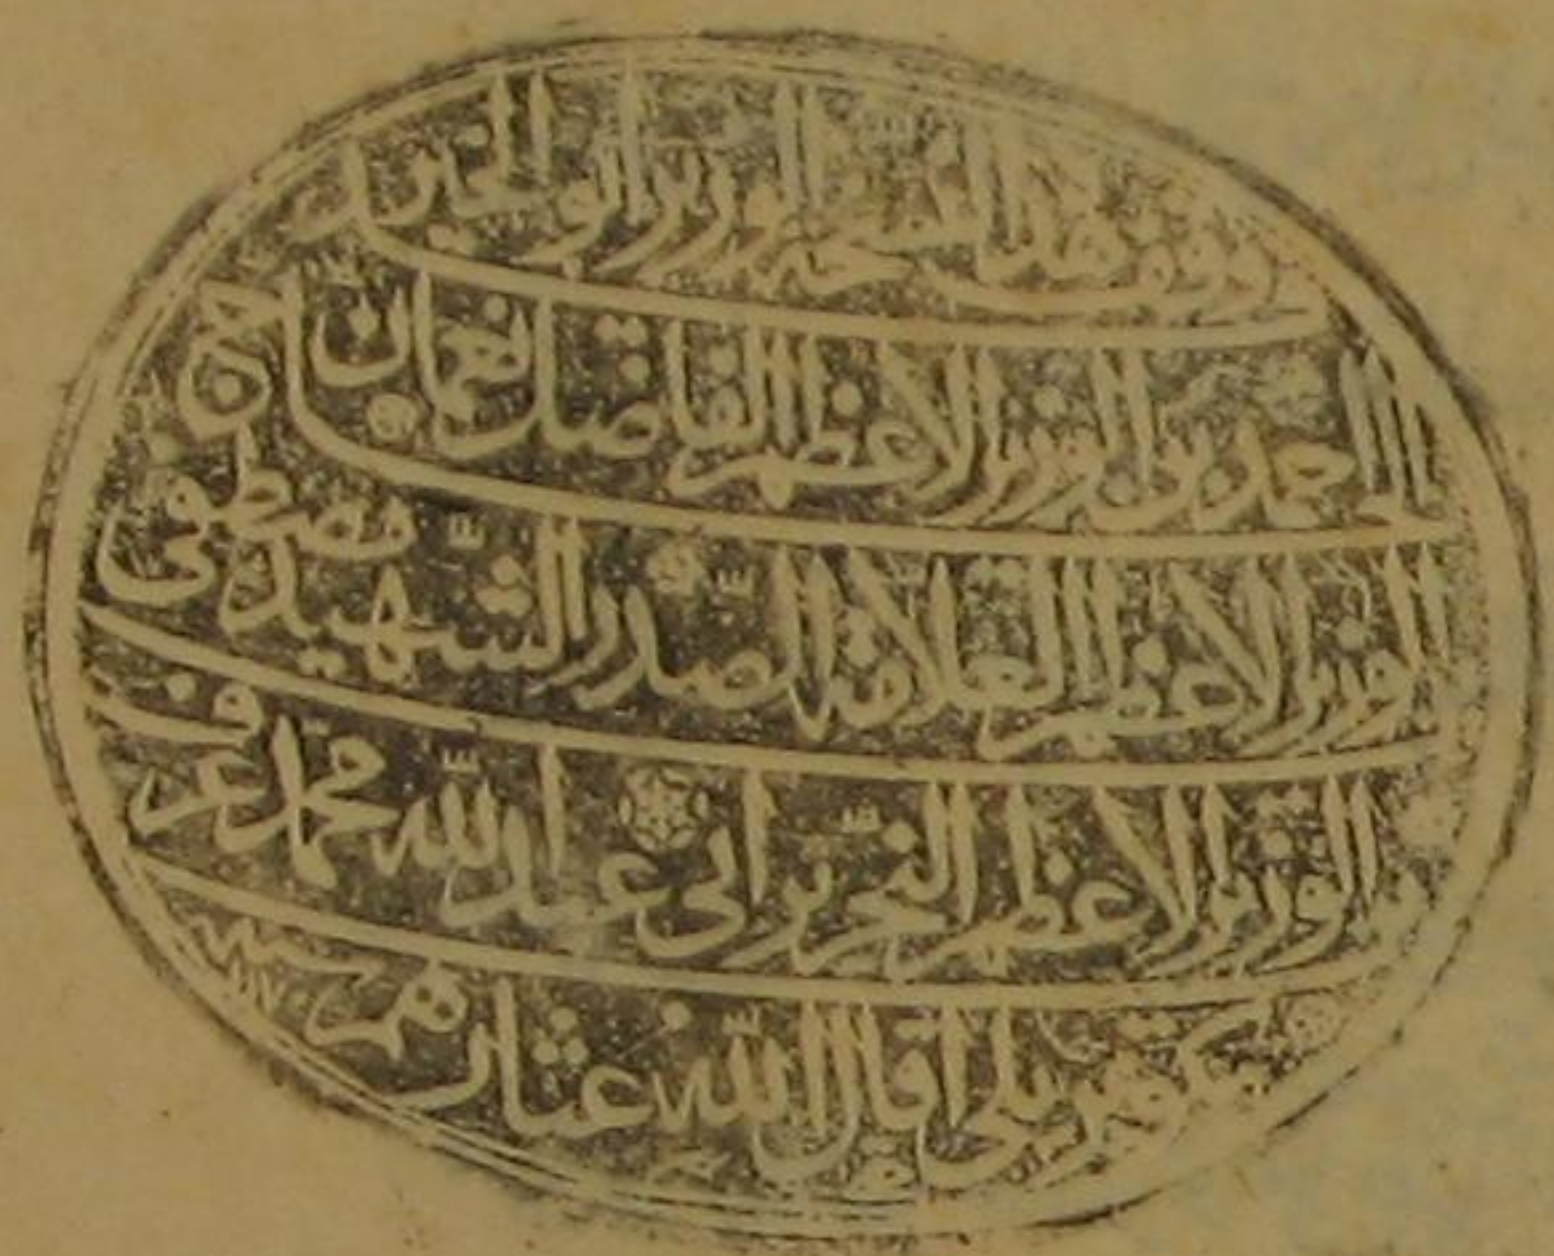 وقف هذه النسخة الوزير ابو الخير
الحاج احمد بن الوزير الاعظم الفاضل نعمان بن
الوزير الاعظم العلامة الصدر الشهيد مصطفى بن
الوزير الاعظم النحرير ابي عبد الله محمد عرف
بكوپريلي اقال الله عثارهم